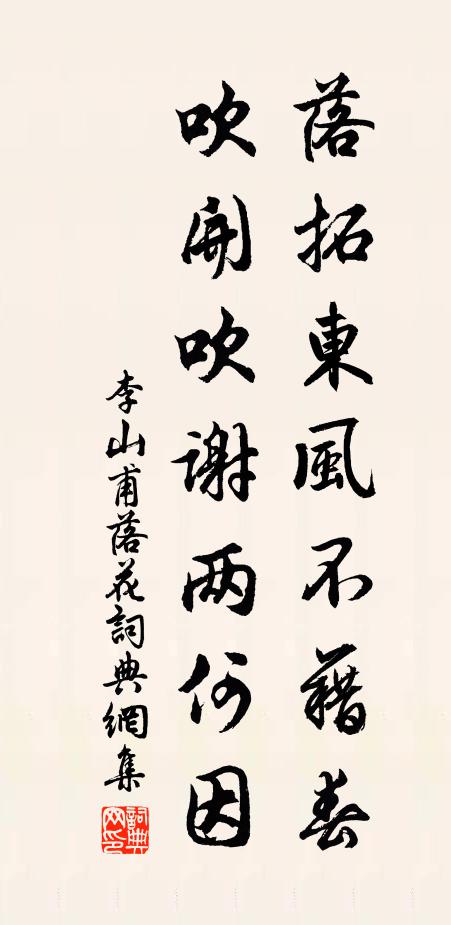 落拓東風不藉春
吹開吹謝兩何因
李山甫落花詞典網集
詞典網印